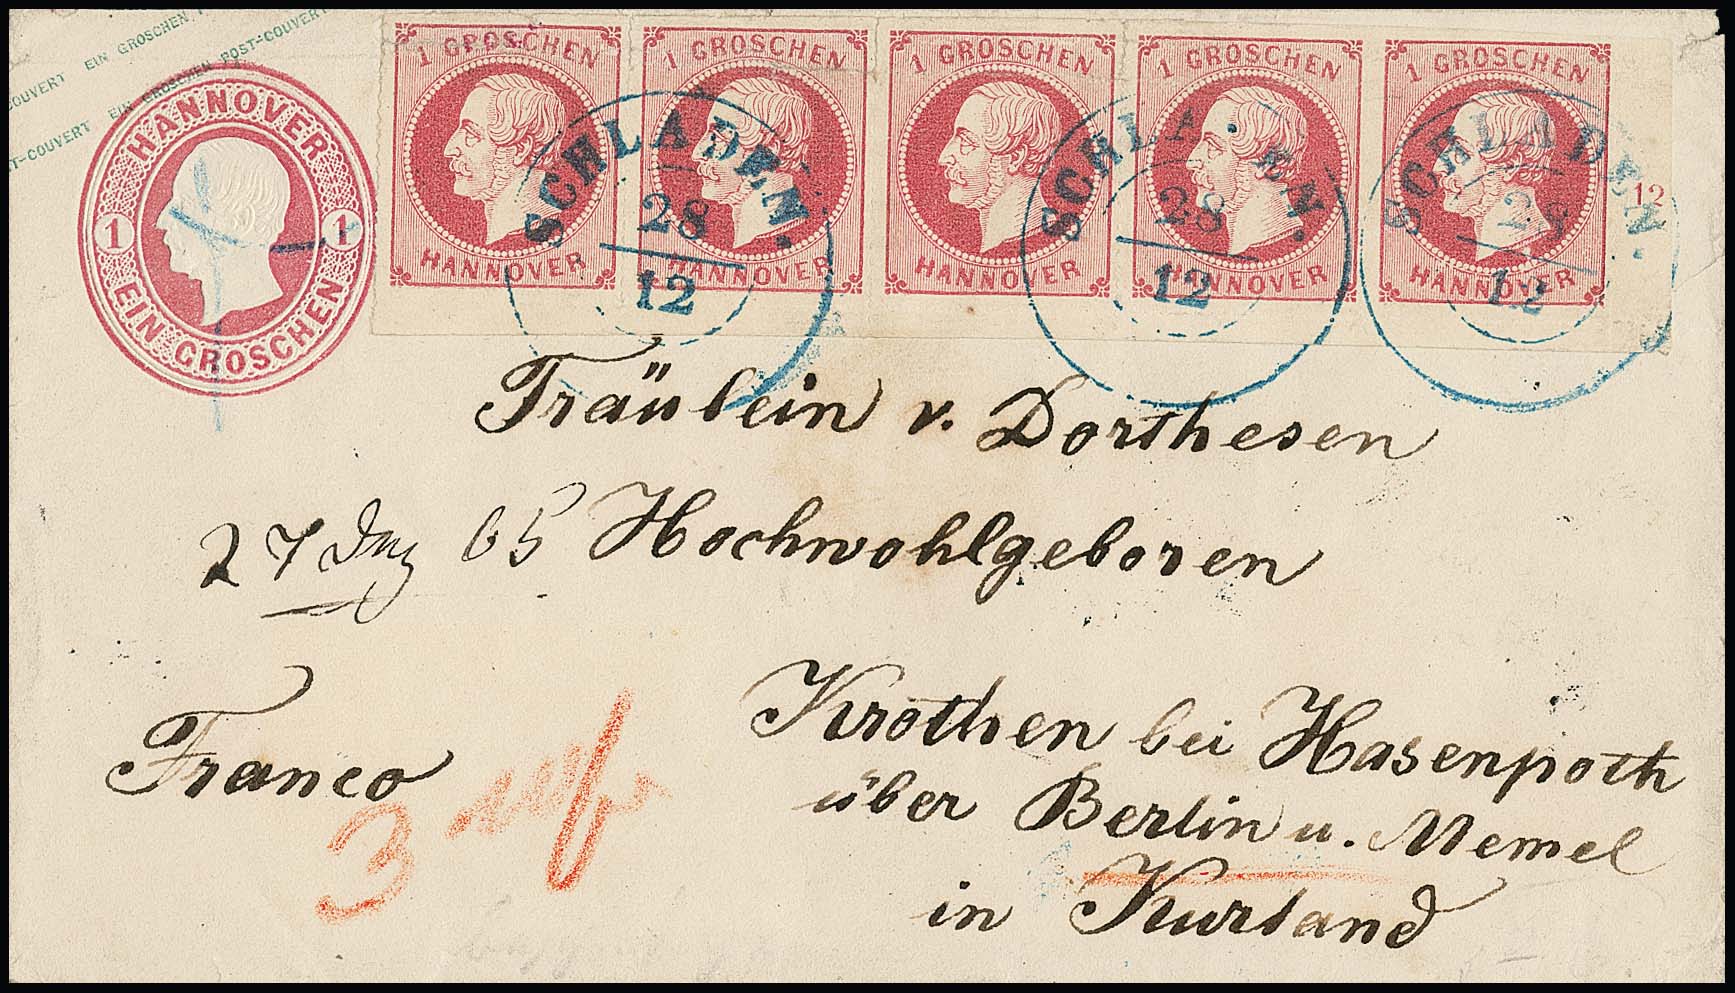 EIN GROSCHEN POST-COUVERT
POST-COUVERT EIN GROSCHEN POST-COUVERT
HANNOVER
1 1
EIN GROSCHEN
1 GROSCHEN
HANNOVER
1 GROSCHEN
HANNOVER
1 GROSCHEN
HANNOVER
1 GROSCHEN
HANNOVER
1 GROSCHEN
HANNOVER
12
SCHLADEN.
28
12
SCHLADEN.
28
12
SCHLADEN.
28
12
Fräulein v. Dorthesen
27 65 Hochwohlgeboren
Franco
3
Krothen bei Hasenpoth
über Berlin u. Memel
in Kurland